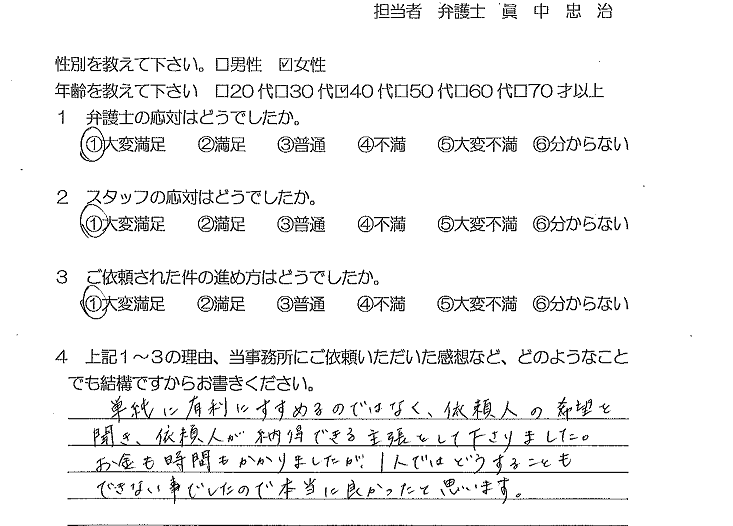 担当者　弁護士　眞　中　忠　治
性別を教えて下さい。☐男性　☑女性
年齢を教えて下さい　☐20代☐30代☑40代☐50代☐60代☐70才以上
１　弁護士の応対はどうでしたか。
①大変満足　②満足　③普通　④不満　⑤大変不満　⑥分からない
２　スタッフの応対はどうでしたか。
①大変満足　②満足　③普通　④不満　⑤大変不満　⑥分からない
３　ご依頼された件の進め方はどうでしたか。
①大変満足　②満足　③普通　④不満　⑤大変不満　⑥分からない
４　上記１～３の理由、当事務所にご依頼いただいた感想など、どのようなこと
でも結構ですからお書きください。
単純に有利にすすめるのではなく、依頼人の希望を
聞き、依頼人が納得できる主張をして下さりました。
お金も時間もかかりましたが、1人ではどうすることも
できない事でしたので本当に良かったと思います。